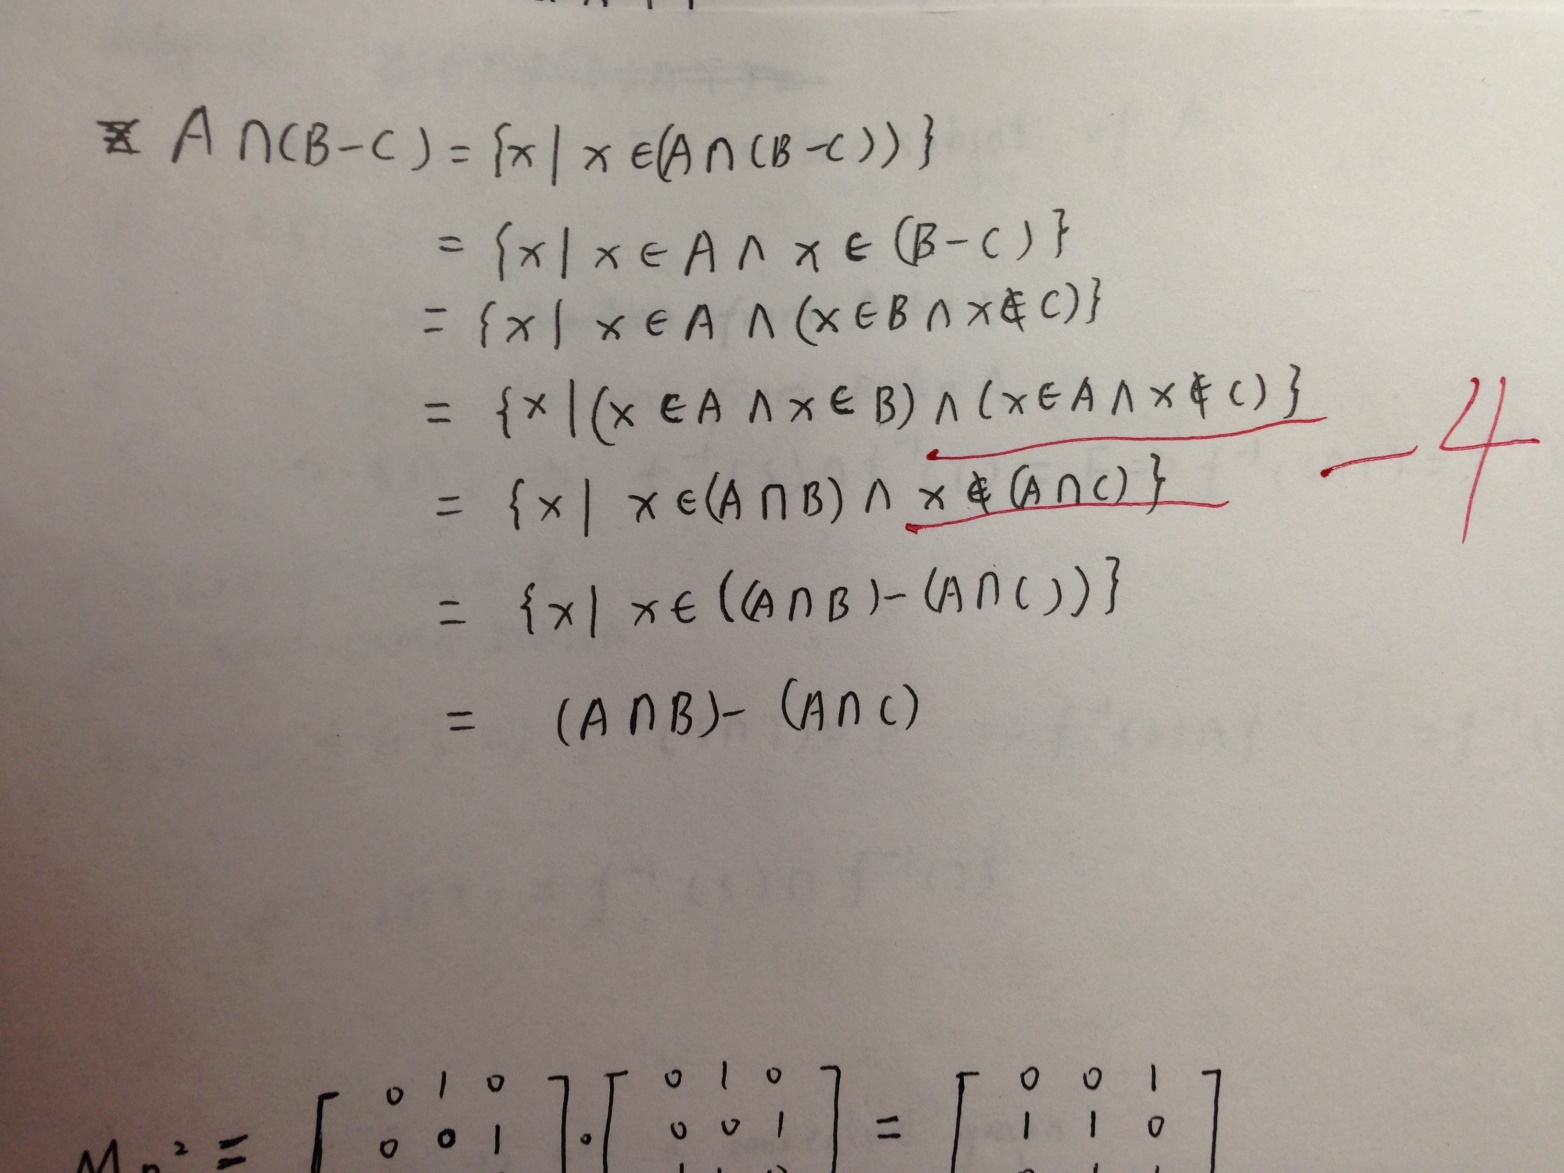 A ∩ (B - C) = {x | x ∈ (A ∩ (B - C))}
= {x | x ∈ A ∧ x ∈ (B - C)}
= {x | x ∈ A ∧ (x ∈ B ∧ x ∉ C)}
= {x | (x ∈ A ∧ x ∈ B) ∧ (x ∈ A ∧ x ∉ C)}
-4
= {x | x ∈ (A ∩ B) ∧ x ∉ (A ∩ C)}
= {x | x ∈ ((A ∩ B) - (A ∩ C))}
= (A ∩ B) - (A ∩ C)
0 1 0 0 1 0 0 0 1
= [0 0 1] · [0 0 1] = [1 1 0]